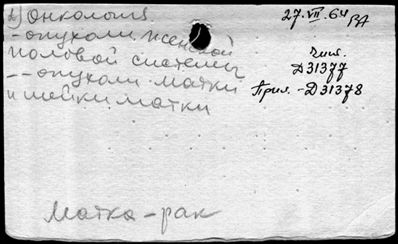 1) Онкология.
- опухоли женской
половой системы
-- опухоли матки
и шейки матки
27.VII.64
Чит.
Д31377
Прил. - Д31378
Матка - рак